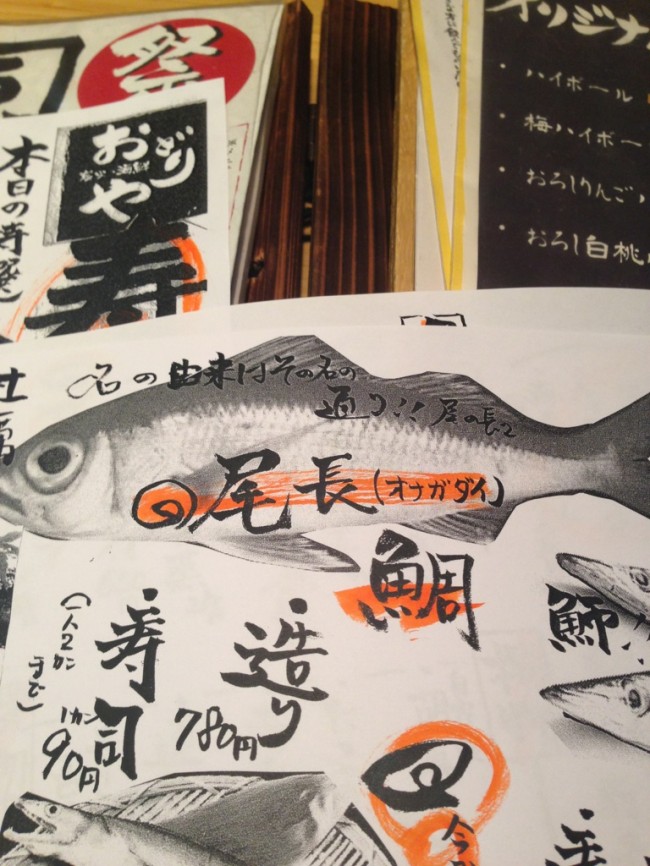 祭
おどりや
本日の寿
寿
イリジナ
・ハイボール
・梅ハイボー
・おろしりんご
・おろし白桃
名の由来はその名の
通り!!尾の長い
尾長(オナガダイ)
鯛
造り
780円
寿司
(一人2カン
まで)
1カン
90円
鰤
今
寿